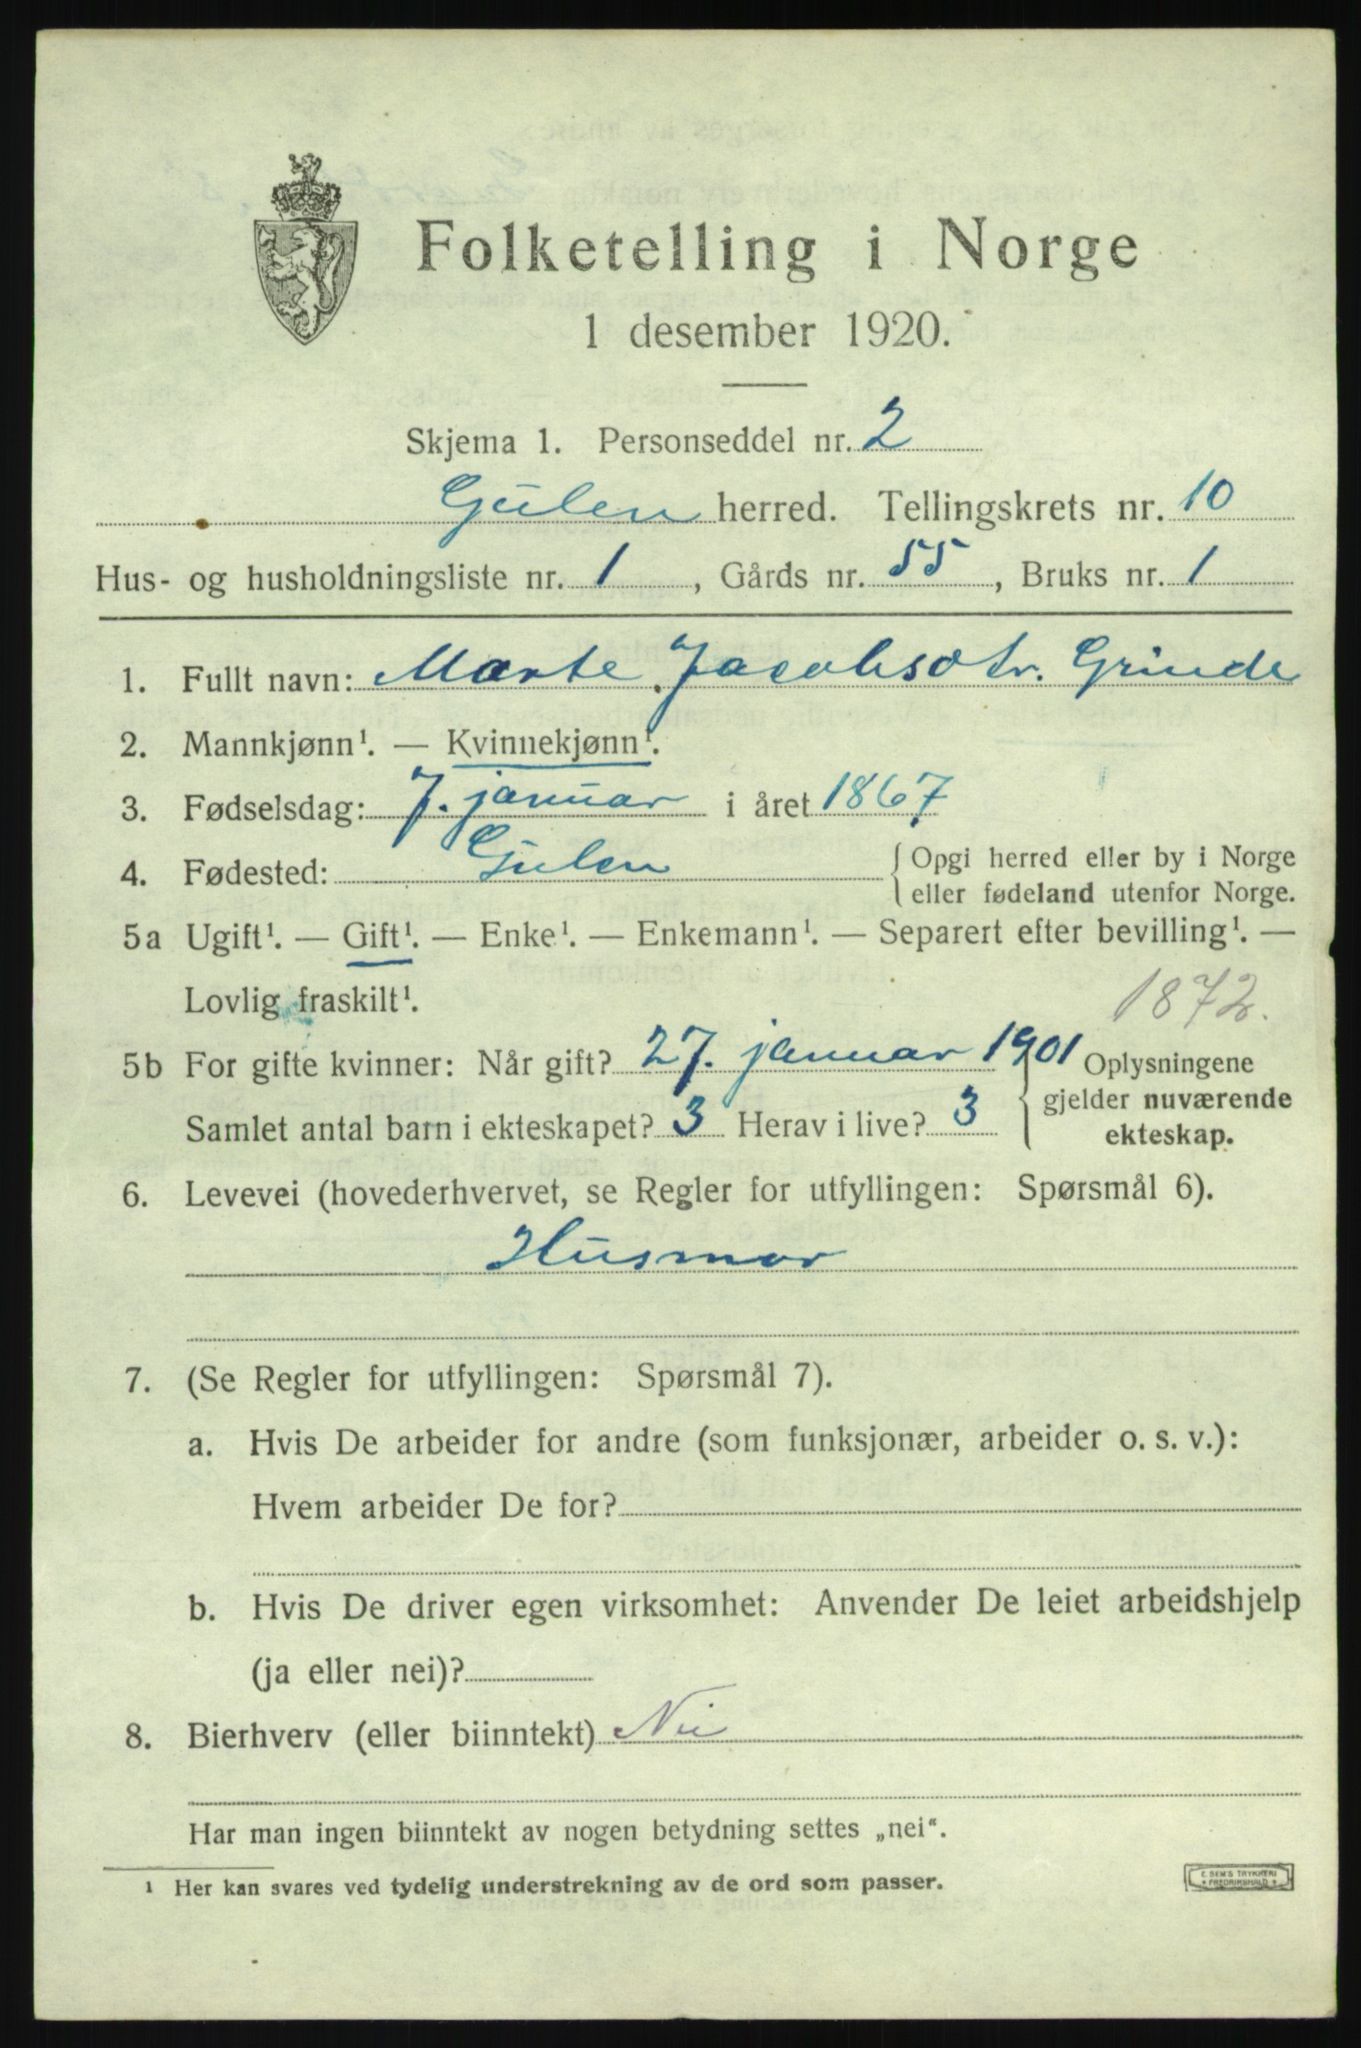 Folketelling i Norge
1 desember 1920.
Skjema 1. Personseddel nr. 2
Gulen herred. Tellingskrets nr. 10
Hus- og husholdningsliste nr. 1, Gårds nr. 55, Bruks nr. 1
1. Fullt navn: Marte Jacobsdtr. Grinde
2. Mannkjønn¹. — Kvinnekjønn¹.
3. Fødselsdag: 7. januar i året 1867
4. Fødested: Gulen {Opgi herred eller by i Norge
eller fødeland utenfor Norge.
5a Ugift¹. — Gift¹. — Enke¹. — Enkemann¹. — Separert efter bevilling¹. —
Lovlig fraskilt¹. 1872.
5b For gifte kvinner: Når gift? 27. januar 1901 Oplysningene
gjelder nuværende
Samlet antal barn i ekteskapet? 3 Herav i live? 3 ekteskap.
6. Levevei (hovederhvervet, se Regler for utfyllingen: Spørsmål 6).
Husmor
7. (Se Regler for utfyllingen: Spørsmål 7).
a. Hvis De arbeider for andre (som funksjonær, arbeider o. s. v.):
Hvem arbeider De for?
b. Hvis De driver egen virksomhet: Anvender De leiet arbeidshjelp
(ja eller nei)?
8. Bierhverv (eller biinntekt) Nei
Har man ingen biinntekt av nogen betydning settes „nei“.
¹ Her kan svares ved tydelig understrekning av de ord som passer.
E. SEM'S TRYKKERI
FREDRIKSHALD